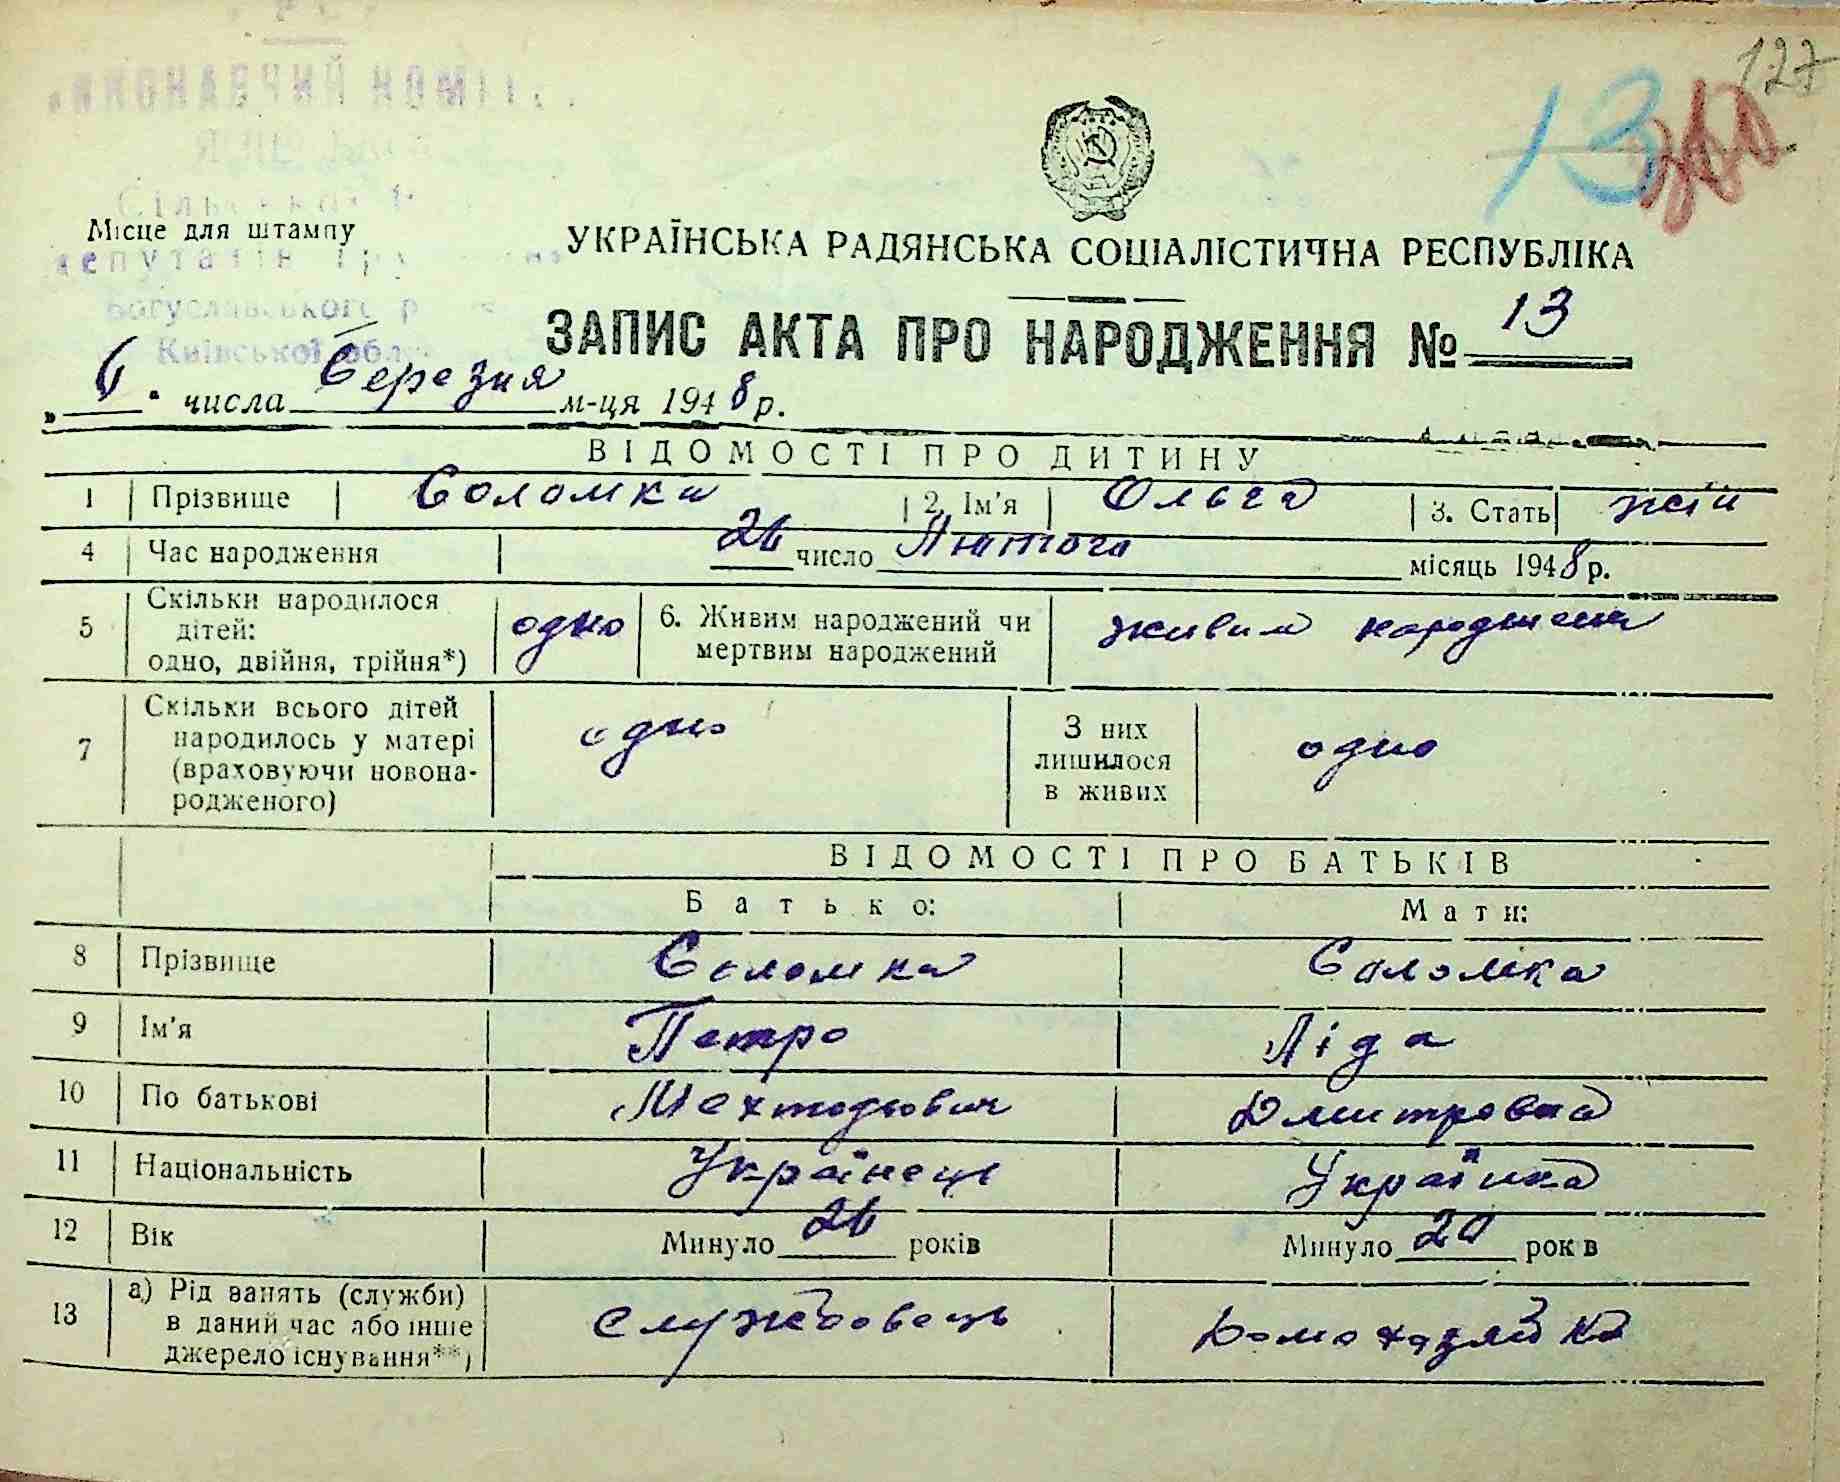 127
13
Місце для штампу
Богуславського р
Київської обл
УКРАЇНСЬКА РАДЯНСЬКА СОЦІАЛІСТИЧНА РЕСПУБЛІКА
ЗАПИС АКТА ПРО НАРОДЖЕННЯ № 13
„6“ числа Березня м-ця 1948 р.
ВІДОМОСТІ ПРО ДИТИНУ
1 Прізвище Соломка 2. Ім'я Ольга 3. Стать жін
4 Час народження 26 число Лютого місяць 1948 р.
5 Скільки народилося дітей: одно, двійня, трійня*) одно 6. Живим народжений чи мертвим народжений живим народжена
7 Скільки всього дітей народилось у матері (враховуючи новонародженого) одно З них лишилося в живих одно
ВІДОМОСТІ ПРО БАТЬКІВ
Батько: Мати:
8 Прізвище Соломка Соломка
9 Ім'я Петро Ліда
10 По батькові Мехтодьович Дмитровна
11 Національність Українець Українка
12 Вік Минуло 26 років Минуло 20 років
13 а) Рід занять (служби) в даний час або інше джерело існування**) службовець Домохазяйка